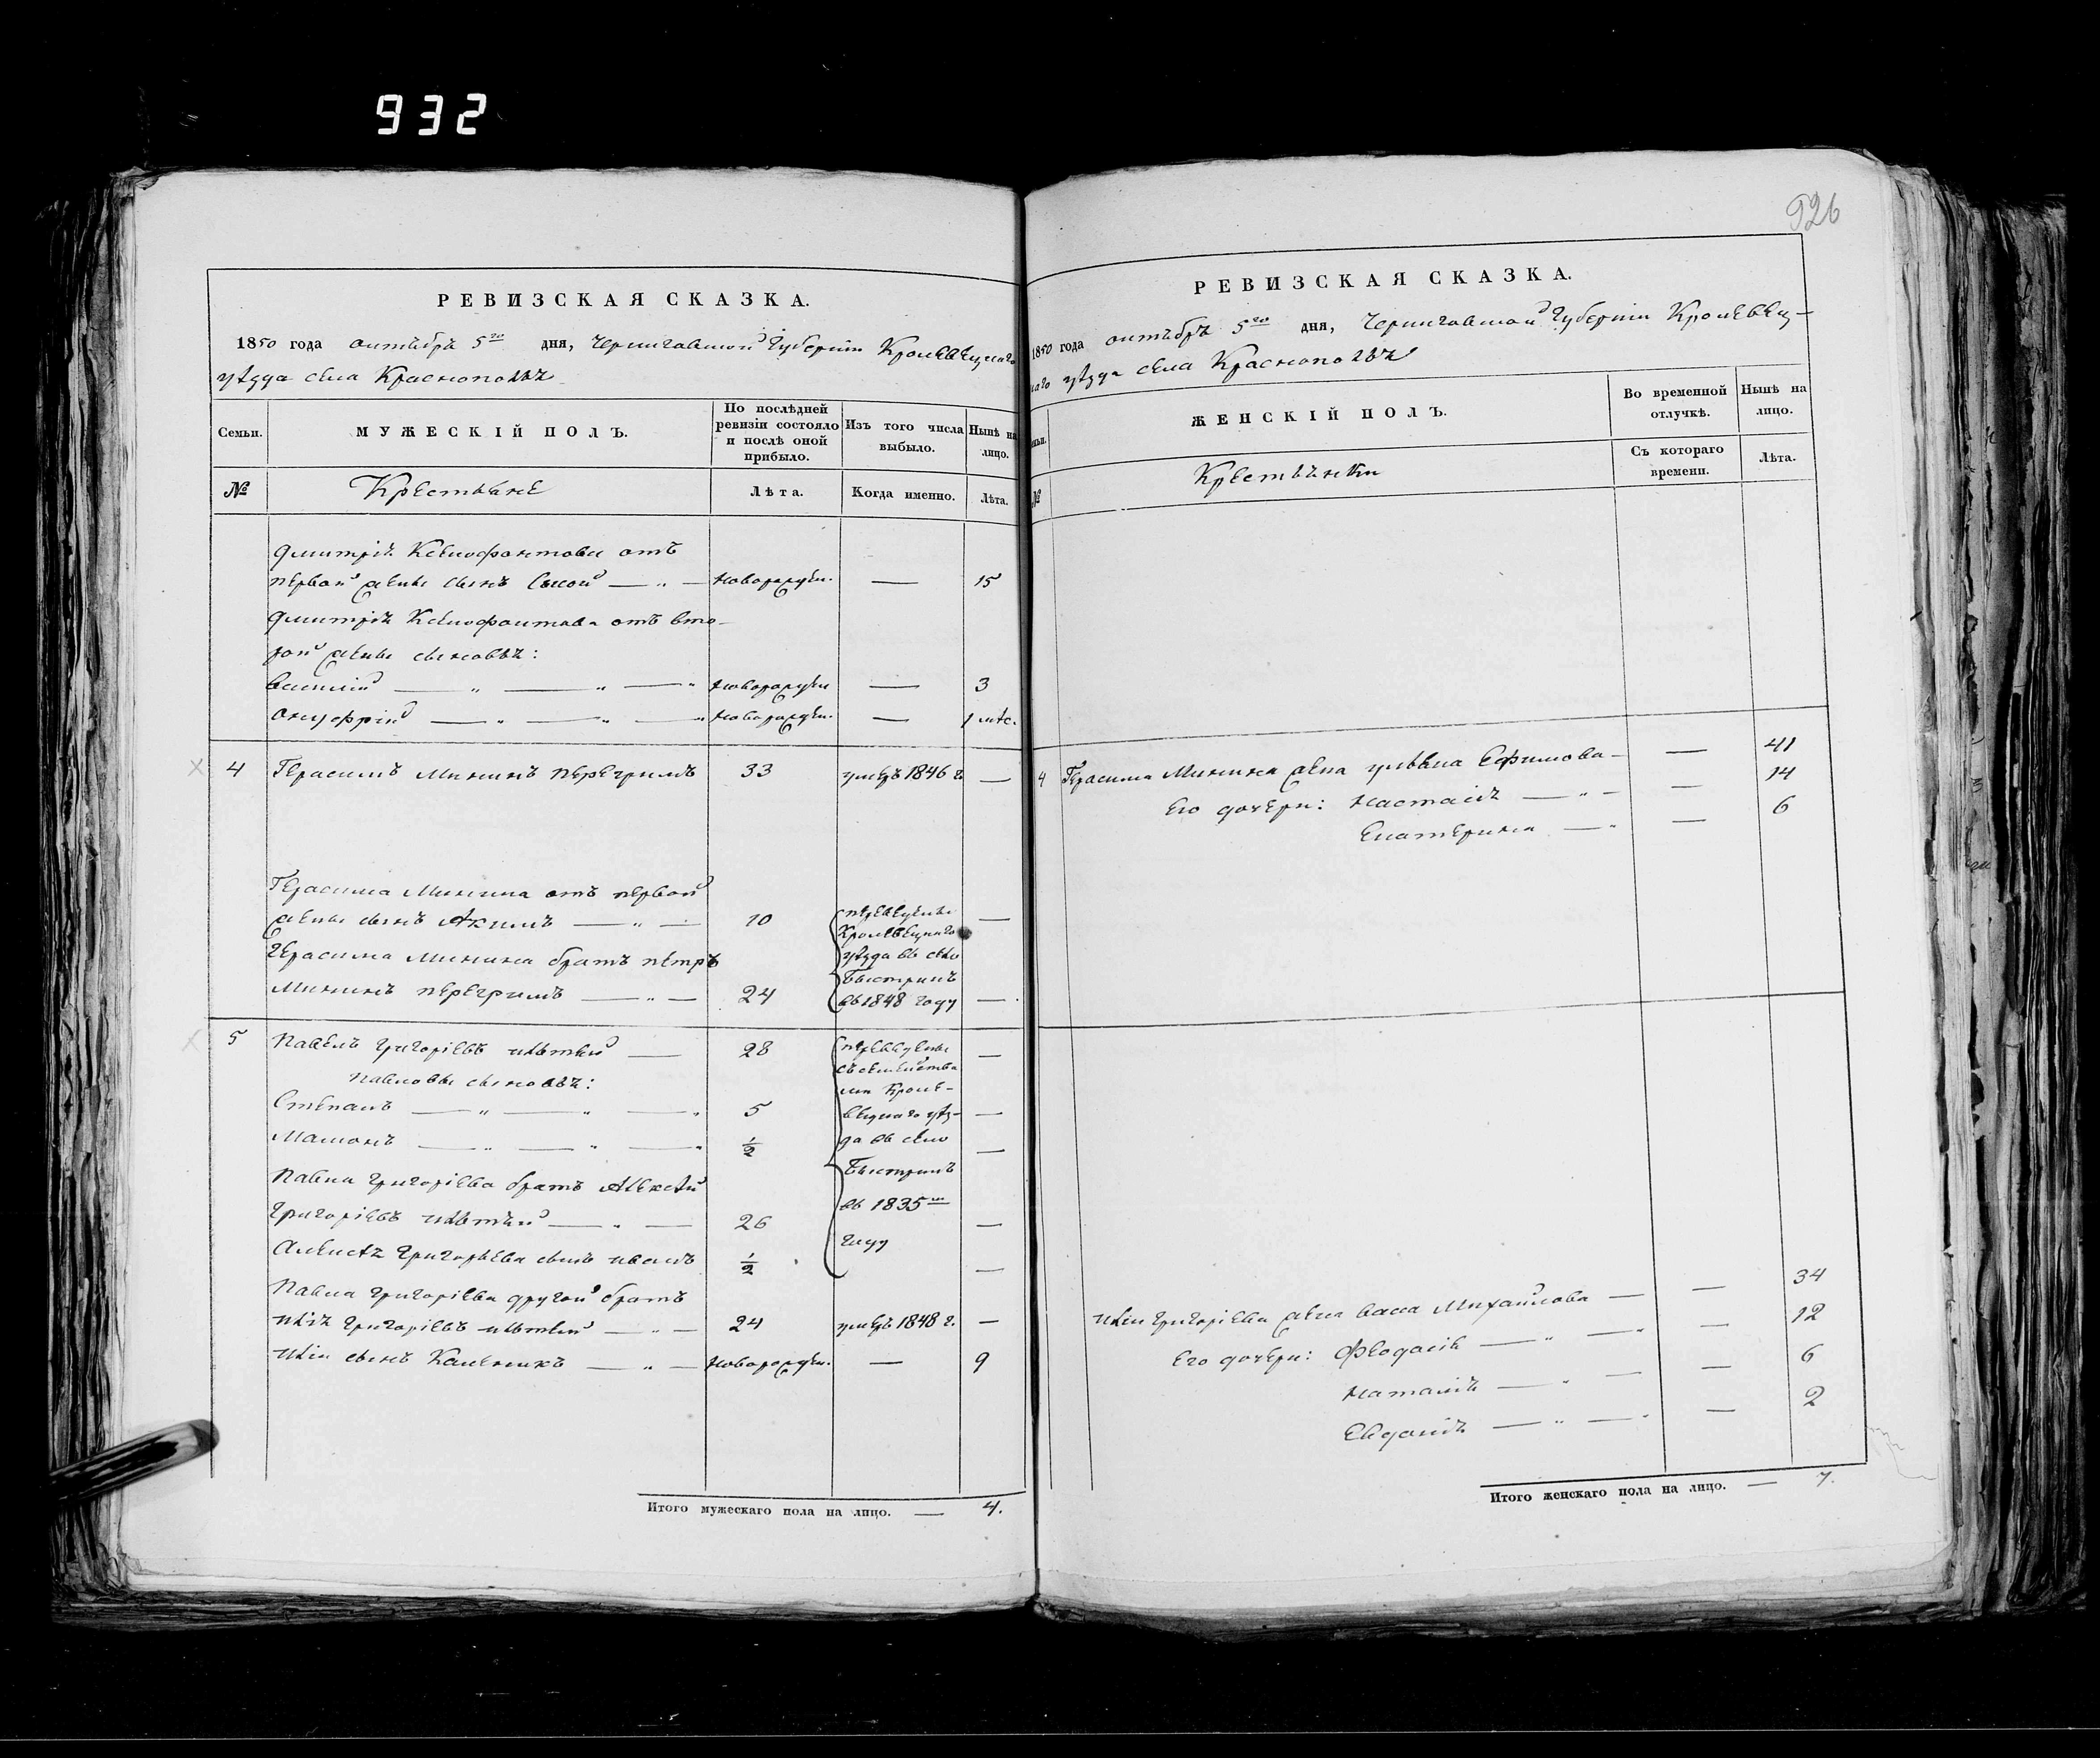 932
926
РЕВИЗСКАЯ СКАЗКА.
1850 года октября 5го дня, Черниговской Губернии Кролевецкаго
уѣзда села Краснополья
Семьи.
МУЖЕСКІЙ ПОЛЪ.
По послѣдней ревизіи состояло и послѣ оной прибыло.
Изъ того числа выбыло.
Нынѣ на лицо.
№
Крестьяне
Лѣта.
Когда именно.
Лѣта.
Дмитрія Ксенофонтова отъ
первой жены сынъ Сысой — „ — новорожден. — 15
Дмитрія Ксенофонтова отъ вто-
рой жены сыновья:
Василій — „ — „ — „ новорожден — 3
Онуфрій — „ — „ — „ новорожден. — 1 мѣс.
4 Герасимъ Мининъ Перегримъ 33 умеръ 1846 г. —
Герасима Минина отъ первой
жены сынъ Акимъ — „ — 10 —
Герасима Минина братъ Петръ
Мининъ Перегримъ — „ — 24 —
переведены
Кролевецкаго
уѣзда въ село
Быстрикъ
въ 1848 году
5 Павелъ Григорьевъ — 28 —
Павловы сыновья:
Степанъ — „ — „ — „ 5 —
Мамонъ — „ — „ — „ ½ —
Павла Григорьева братъ Алексѣй
Григорьевъ — „ — 26 —
Алексѣя Григорьева сынъ Иванъ ½ —
переведены
съ семейства
ми Кроле-
вецкаго уѣз-
да въ село
Быстрикъ
въ 1835м
году
Павла Григорьева другой братъ
Илія Григорьевъ — „ — 24 умеръ 1848 г. —
Иліи сынъ Каленикъ — „ — новорожден. — 9
Итого мужескаго пола на лицо. — 4.
РЕВИЗСКАЯ СКАЗКА.
1850 года октября 5го дня, Черниговской Губерніи Кролевец-
каго уѣзда села Краснополья
ЖЕНСКІЙ ПОЛЪ.
Во временной отлучкѣ.
Нынѣ на лицо.
№
Крестьянки
Съ котораго времени.
Лѣта.
4 Герасима Минина жена Ульяна Ефимова — — 41
Его дочери: Настасія — „ — — 14
Екатерина — „ — 6
Иліи Григорьева жена Васса Михайлова — — 34
Его дочери: Феодосія — „ — „ — 12
Наталія — „ — — 6
Евдокія — „ — „ — 2
Итого женскаго пола на лицо. — 7.